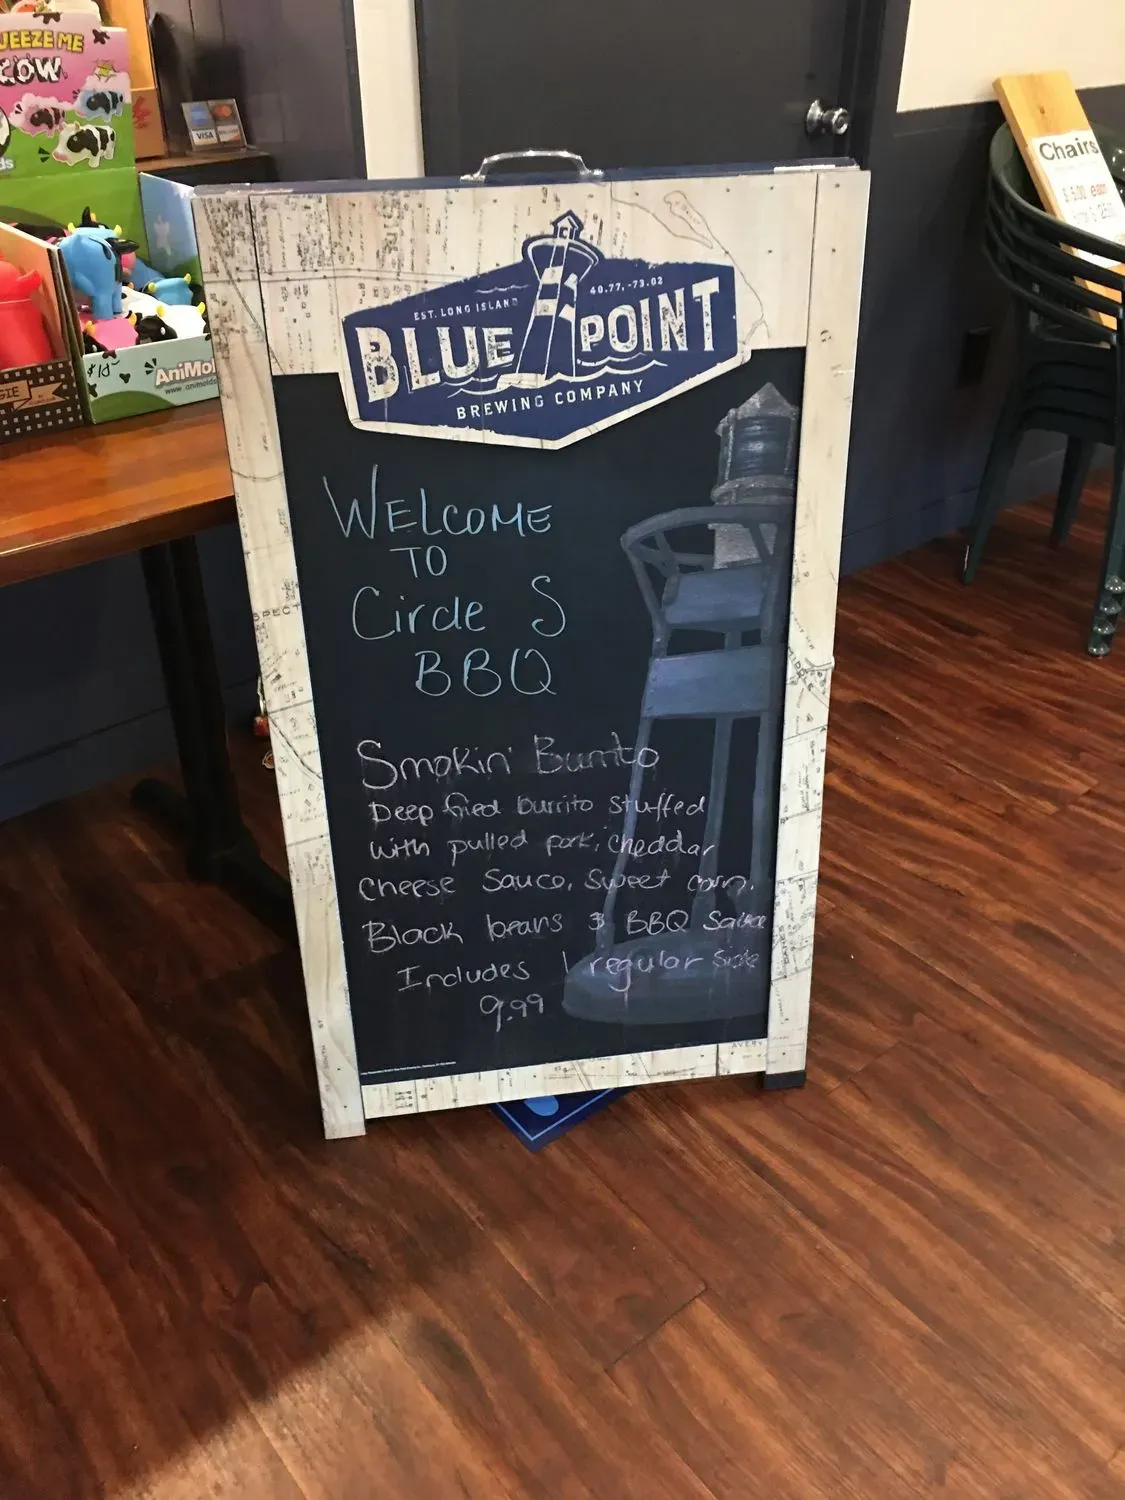 UEEZE ME
COW
VISA
$10
AniMol
www.animolds
GIE
Chairs
$5.00 each
EST. LONG ISLAND
40.77, -73.02
BLUE POINT
BREWING COMPANY
WELCOME
TO
Circle S
BBQ
Smokin' Burrito
Deep fried burrito stuffed
with pulled pork, cheddar
cheese sauce, sweet corn,
Black beans & BBQ Sauce
Includes 1 regular side
9.99